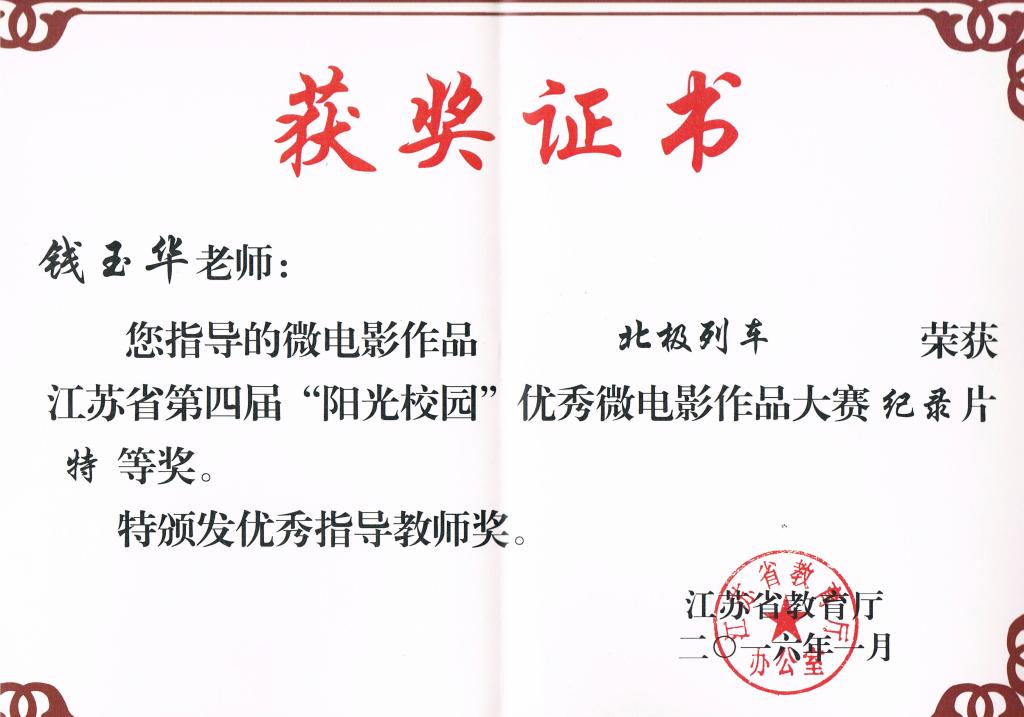 获奖证书
钱玉华老师：
您指导的微电影作品 北极列车 荣获
江苏省第四届“阳光校园”优秀微电影作品大赛纪录片
特等奖。
特颁发优秀指导教师奖。
江苏省教育厅
二〇一六年一月
江苏省教育厅
办公室